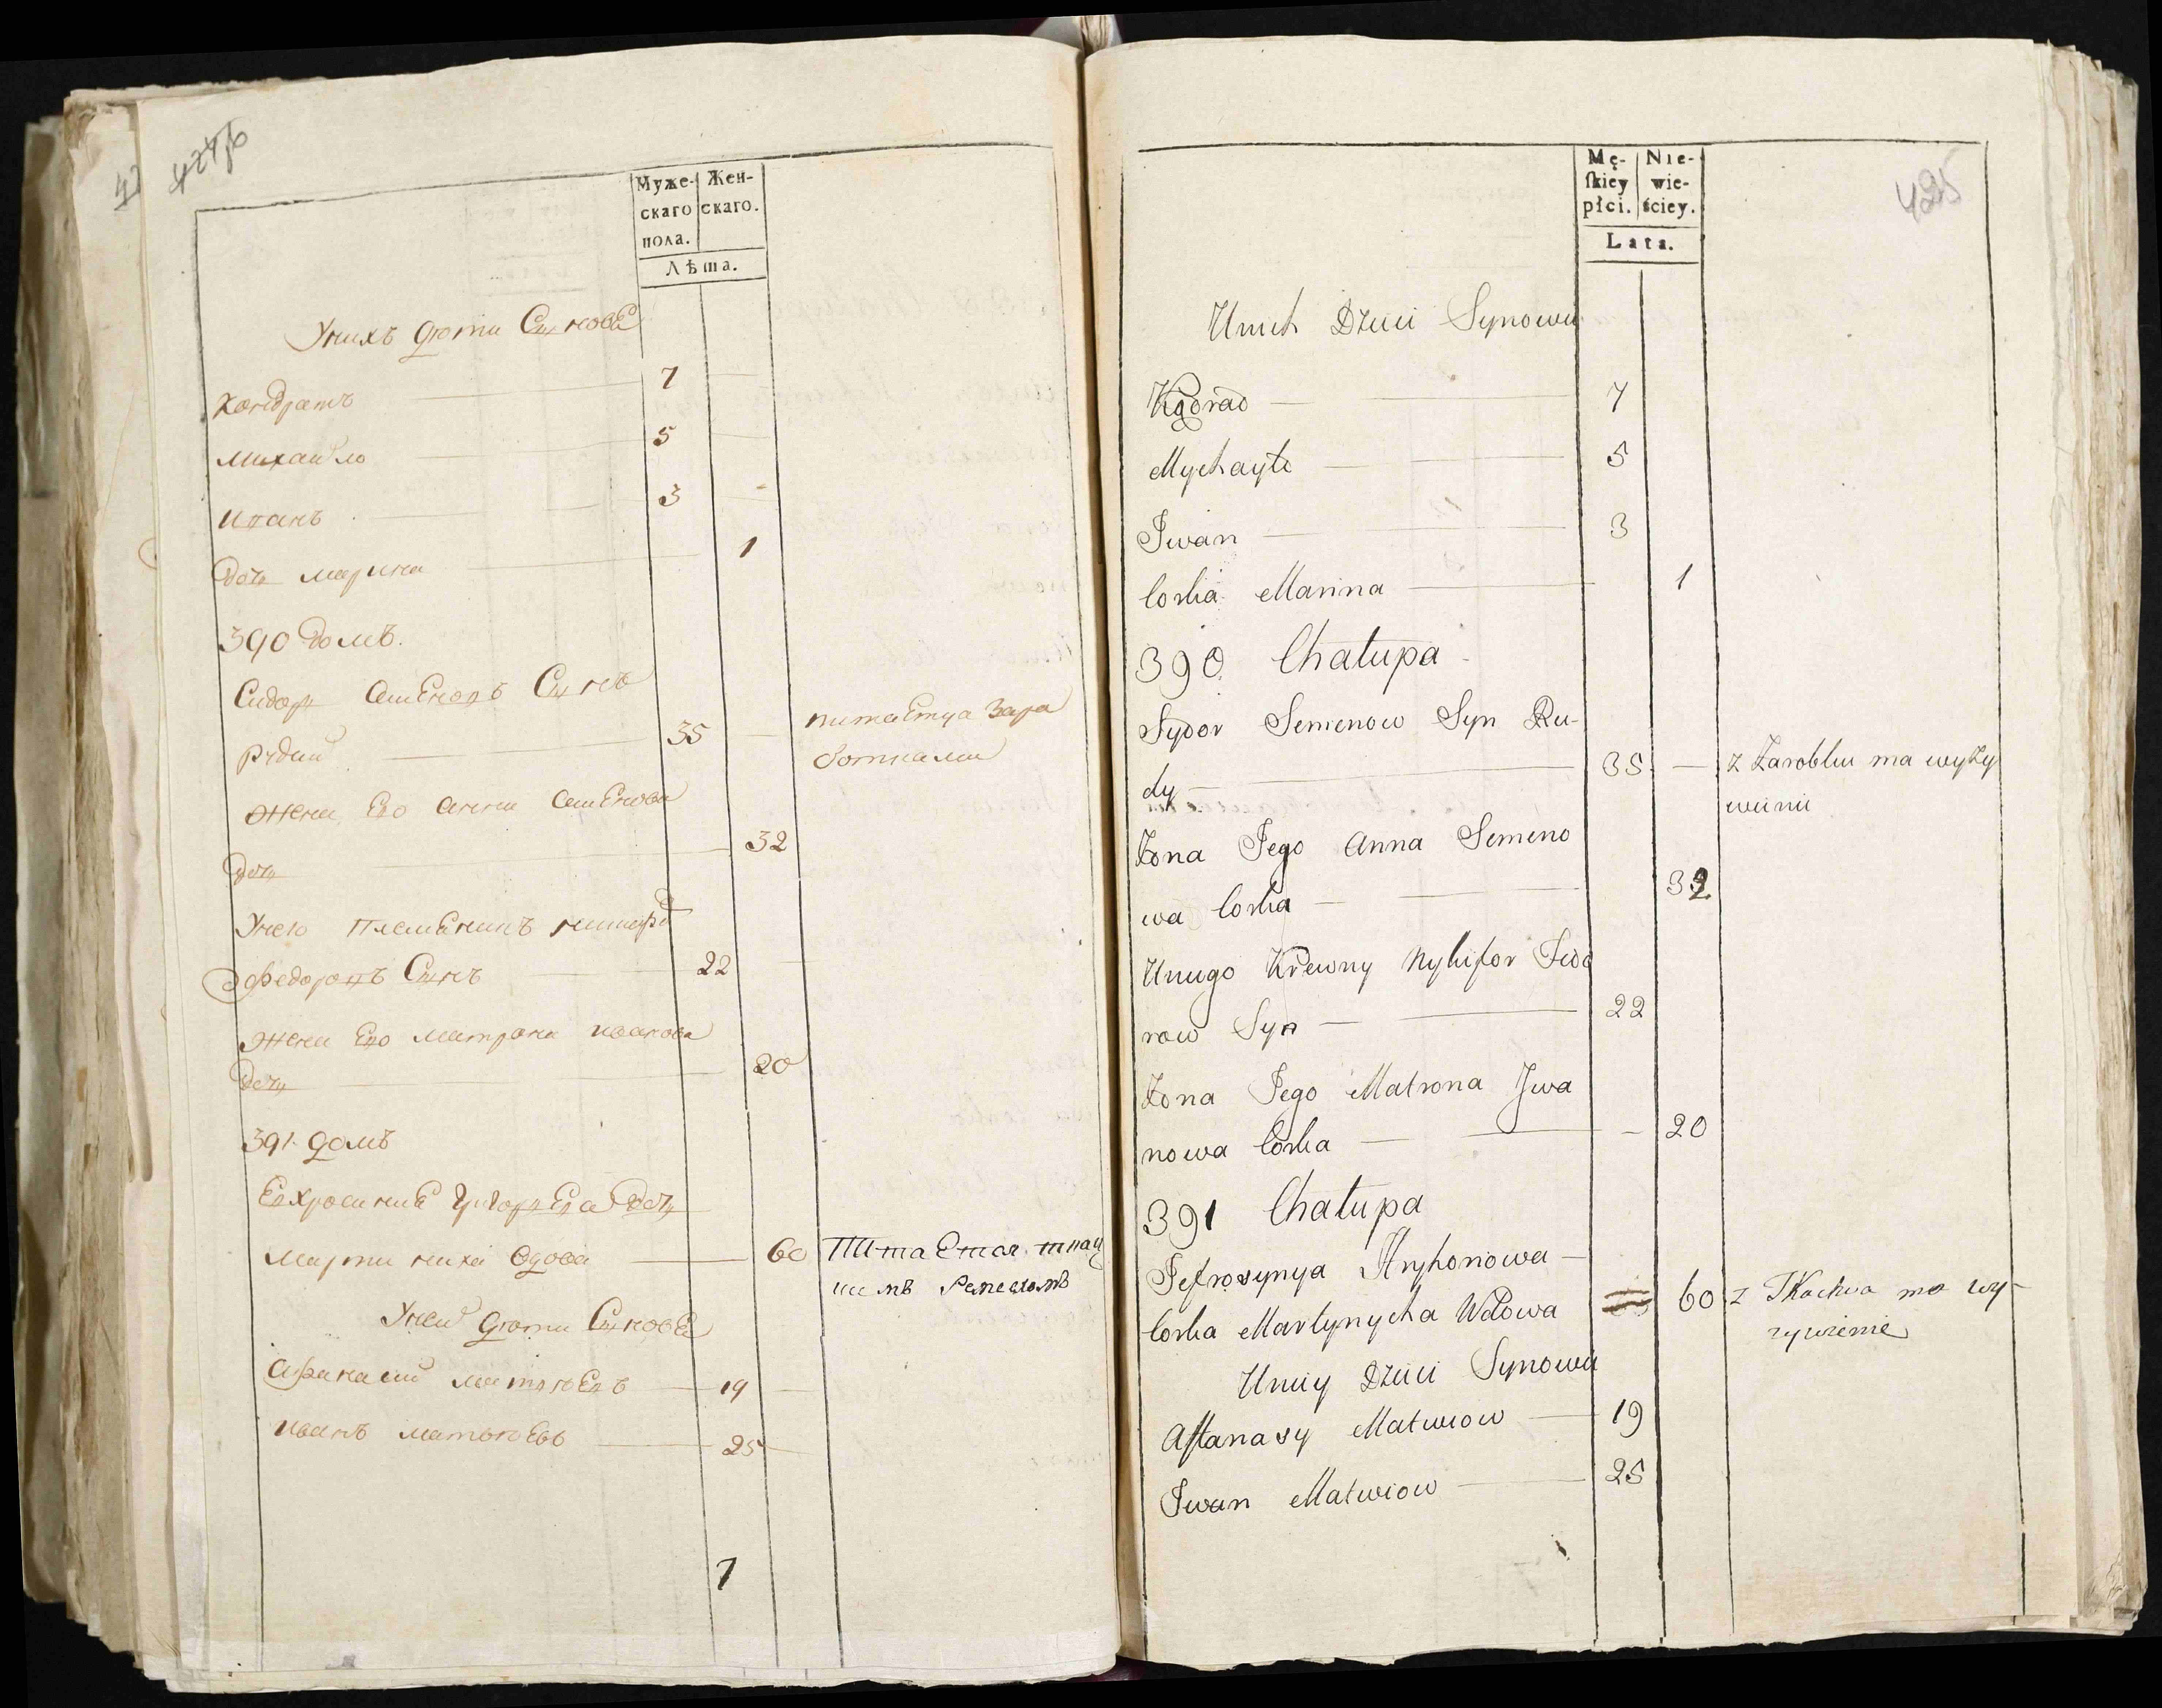 424 об
Муже- Жен-
скаго скаго.
пола.
Лѣта.
Унихъ дюти Сынове
Кондратъ 7
Михайло 5
Иванъ 3
Дочь Марина 1
390 домъ.
Сидоръ Семеновъ Сынъ
Рудий 35 питается Зара
ботками
Жена Его Анна Семенова
Дочь 32
Унего Племеникъ Никифор
Федоровъ Сынъ 22
Жена Его Матрона Иванова
Дочь 20
391 домъ
Евхросиние Григорьева Дочь
Мартиниха Вдова 60 Питается ткац
кимъ Ремесломъ
Уней дюти Сынове
Афанасий Матвюевъ 19
Иванъ Матвюевъ 25
7
425
Mę- Nie-
ſkiey wie-
płci. ściey.
Lata.
Unich Dzieci Synowie
Kądrad 7
Mychayło 5
Jwan 3
Corka Marina 1
390 Chałupa
Sydor Semenow Syn Ru-
dy 35 z Zarobku ma wyży
wienie
Zona Jego Anna Semeno
wa Corka 32
Uniego Krewny Nykifor Fedo
row Syn 22
Zona Jego Matrona Jwa
nowa Corka 20
391 Chałupa
Jefrosynya Hryhorowa
Corka Martynycha Wdowa 60 z Tkactwa ma wy-
zywienie
Uniey Dzieci Synowie
Aftanasy Matwiow 19
Jwan Matwiow 25